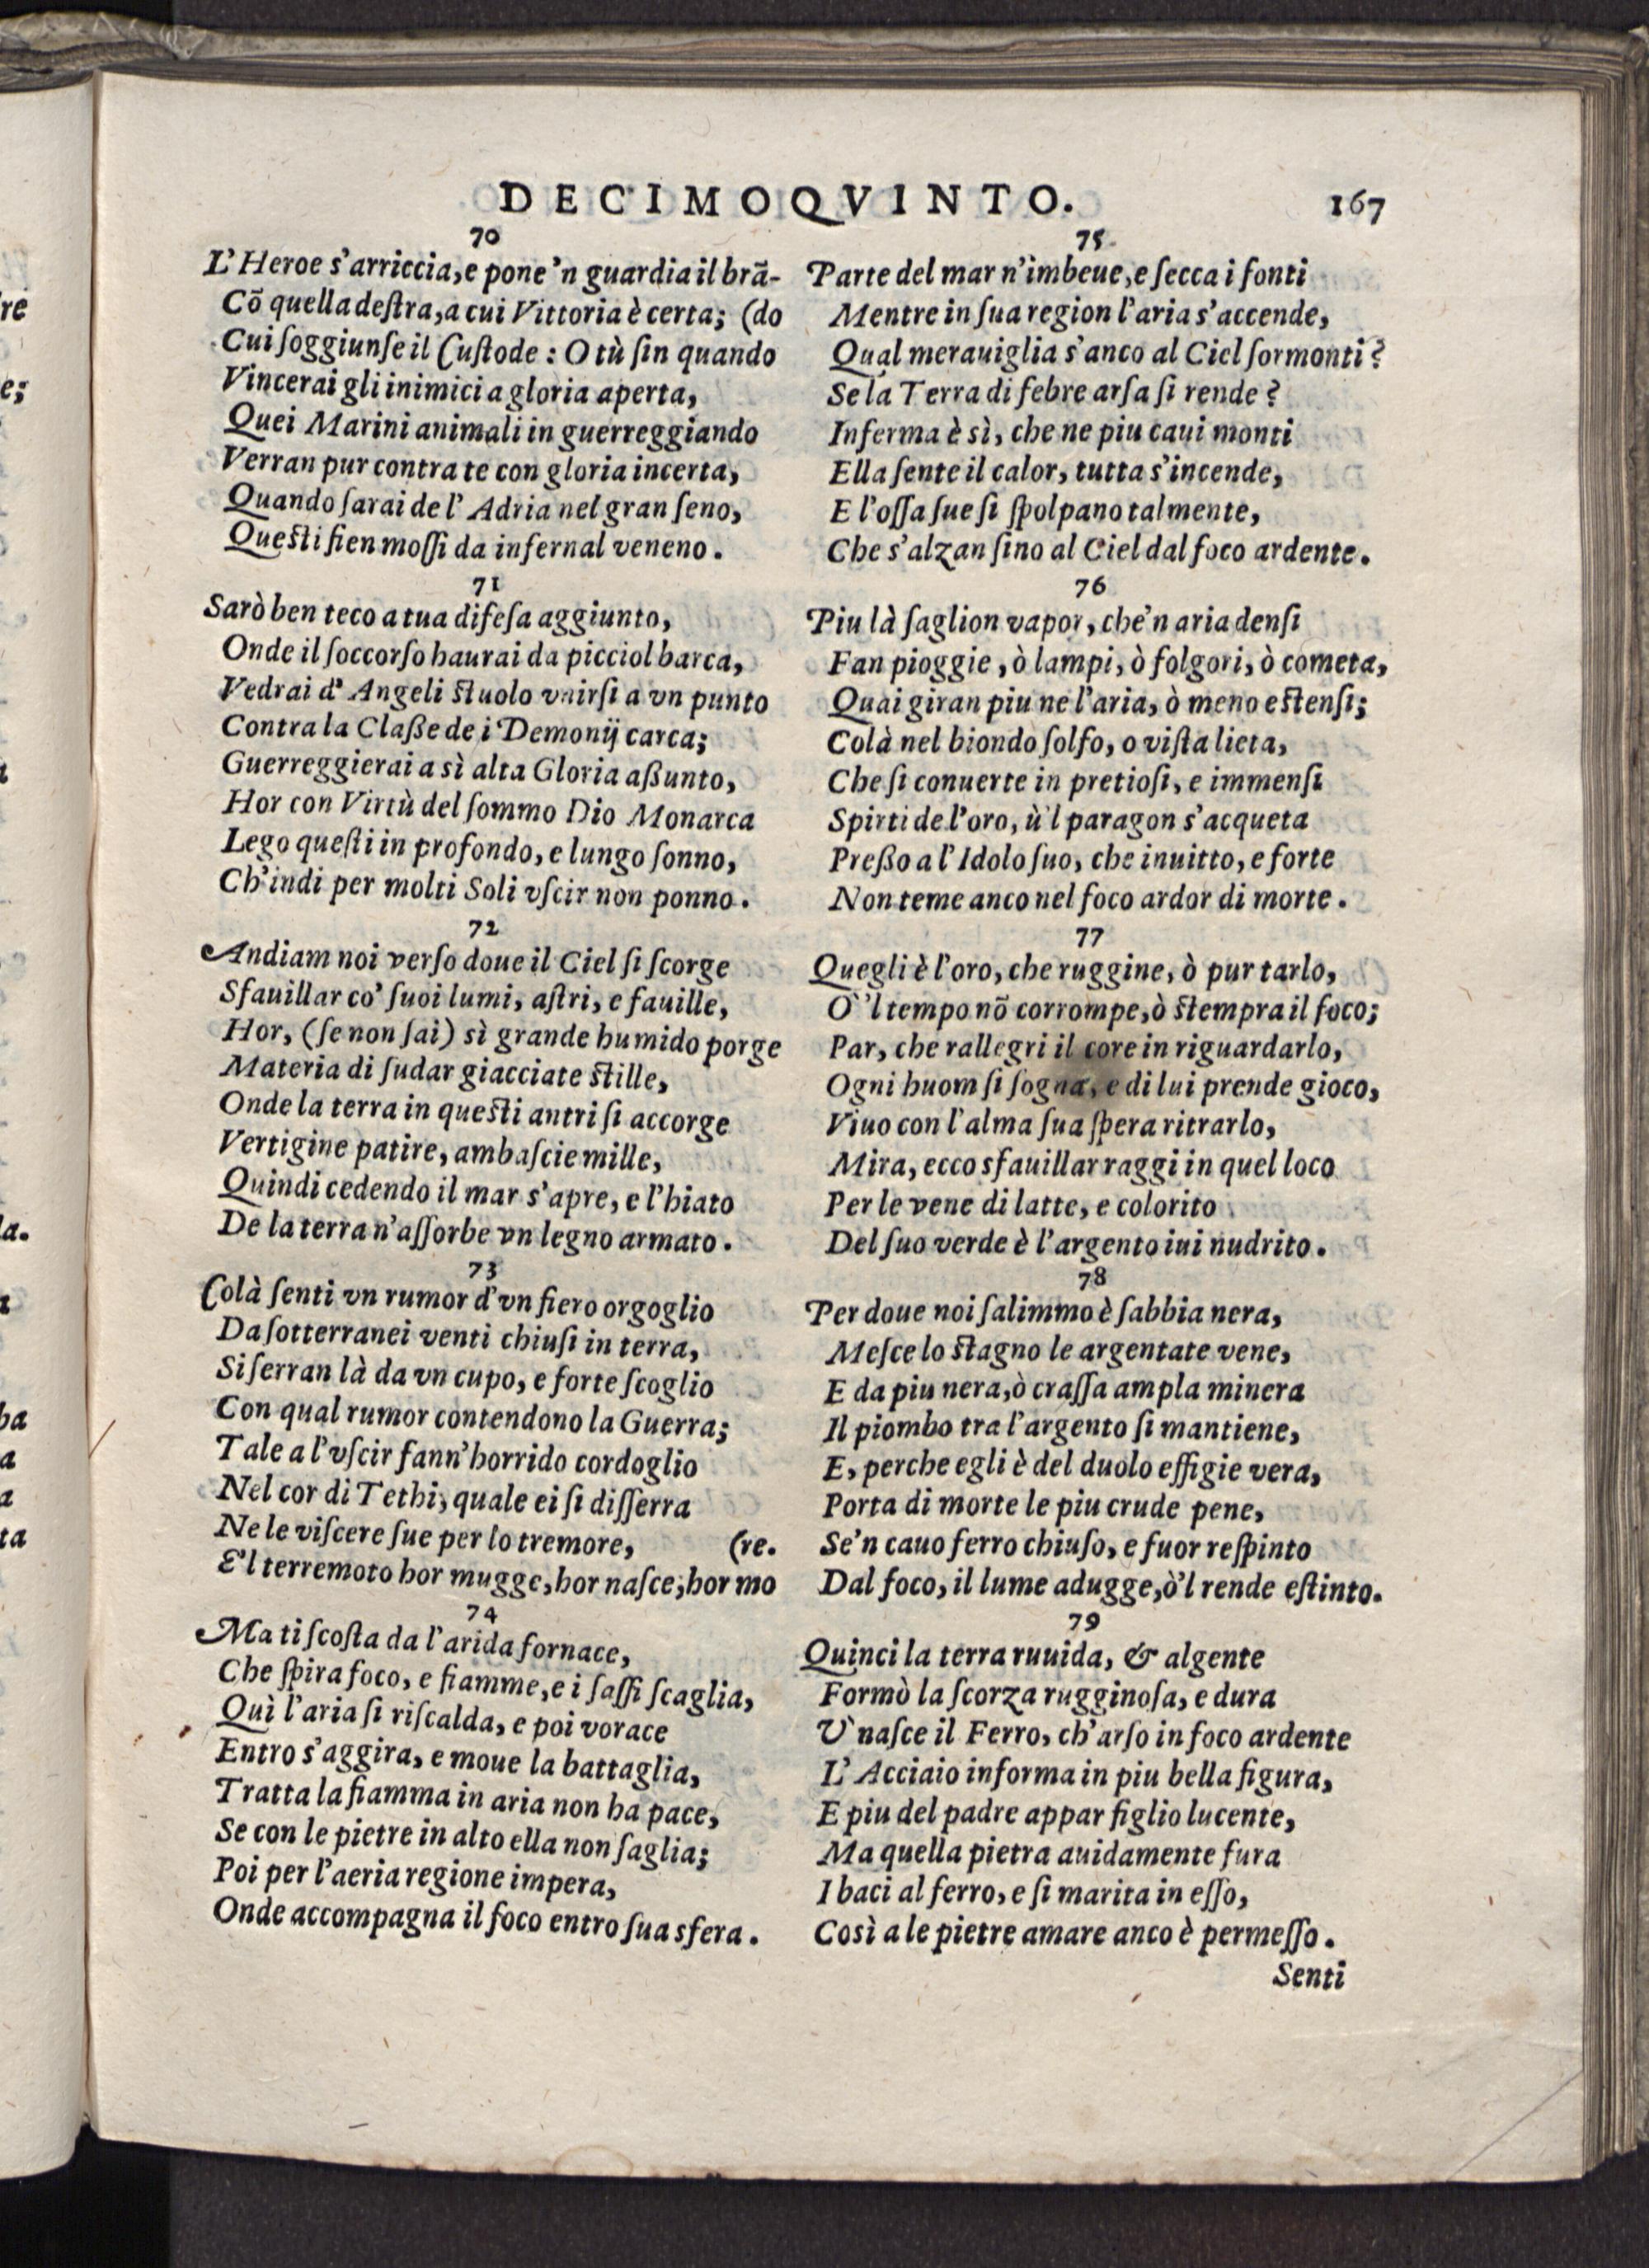 DECIMOQVINTO. 167
70
L'Heroe s'arriccia, e pone 'n guardia il brã-
Cõ quella deſtra, a cui Vittoria è certa; (do
Cui ſoggiunſe il Cuſtode: O tù ſin quando
Vincerai gli inimici a gloria aperta,
Quei Marini animali in guerreggiando
Verran pur contra te con gloria incerta,
Quando ſarai de l'Adria nel gran ſeno,
Queſti fien moſſi da infernal veneno.
71
Sarò ben teco a tua difeſa aggiunto,
Onde il ſoccorſo haurai da picciol barca,
Vedrai d'Angeli ſtuolo vnirſi a vn punto
Contra la Claßе de i Demonij carca;
Guerreggierai a sì alta Gloria aßunto,
Hor con Virtù del ſommo Dio Monarca
Lego queſti in profondo, e lungo ſonno,
Ch'indi per molti Soli vſcir non ponno.
72
Andiam noi verſo doue il Ciel ſi ſcorge
Sfauillar co' ſuoi lumi, aſtri, e fauille,
Hor, (ſe non ſai) sì grande humido porge
Materia di ſudar giacciate ſtille,
Onde la terra in queſti antri ſi accorge
Vertigine patire, ambaſcie mille,
Quindi cedendo il mar s'apre, e l'hiato
De la terra n'aſſorbe vn legno armato.
73
Colà ſenti vn rumor d'vn fiero orgoglio
Da ſotterranei venti chiuſi in terra,
Si ſerran là da vn cupo, e forte ſcoglio
Con qual rumor contendono la Guerra;
Tale a l'vſcir fann'horrido cordoglio
Nel cor di Tethi, quale ei ſi diſſerra
Ne le viſcere ſue per lo tremore, (re.
E'l terremoto hor mugge, hor naſce, hor mo
74
Ma ti ſcoſta da l'arida fornace,
Che ſpira foco, e fiamme, e i ſaſſi ſcaglia,
Quì l'aria ſi riſcalda, e poi vorace
Entro s'aggira, e moue la battaglia,
Tratta la fiamma in aria non ha pace,
Se con le pietre in alto ella non ſaglia;
Poi per l'aeria regione impera,
Onde accompagna il foco entro ſua sfera.
75
Parte del mar n'imbeue, e ſecca i fonti
Mentre in ſua region l'aria s'accende,
Qual merauiglia s'anco al Ciel ſormonti?
Se la Terra di febre arſa ſi rende?
Inferma è sì, che ne piu caui monti
Ella ſente il calor, tutta s'incende,
E l'oſſa ſue ſi ſpolpano talmente,
Che s'alzan ſino al Ciel dal foco ardente.
76
Piu là ſaglion vapor, che'n aria denſi
Fan pioggie, ò lampi, ò folgori, ò cometa,
Quai giran piu ne l'aria, ò meno eſtenſi;
Colà nel biondo ſolfo, o viſta lieta,
Che ſi conuerte in pretioſi, e immenſi
Spirti de l'oro, ù'l paragon s'acqueta
Preßo a l'Idolo ſuo, che inuitto, e forte
Non teme anco nel foco ardor di morte.
77
Quegli è l'oro, che ruggine, ò pur tarlo,
O 'l tempo nõ corrompe, ò ſtempra il foco;
Par, che rallegri il core in riguardarlo,
Ogni huom ſi ſogna, e di lui prende gioco,
Viuo con l'alma ſua ſpera ritrarlo,
Mira, ecco sfauillar raggi in quel loco
Per le vene di latte, e colorito
Del ſuo verde è l'argento iui nudrito.
78
Per doue noi ſalimmo è ſabbia nera,
Meſce lo ſtagno le argentate vene,
E da piu nera, ò craſſa ampla minera
Il piombo tra l'argento ſi mantiene,
E, perche egli è del duolo effigie vera,
Porta di morte le piu crude pene,
Se'n cauo ferro chiuſo, e fuor reſpinto
Dal foco, il lume adugge, ò'l rende eſtinto.
79
Quinci la terra ruuida, & algente
Formò la ſcorza rugginoſa, e dura
V' naſce il Ferro, ch'arſo in foco ardente
L'Acciaio informa in piu bella figura,
E piu del padre appar figlio lucente,
Ma quella pietra auidamente fura
I baci al ferro, e ſi marita in eſſo,
Così a le pietre amare anco è permeſſo.
Senti